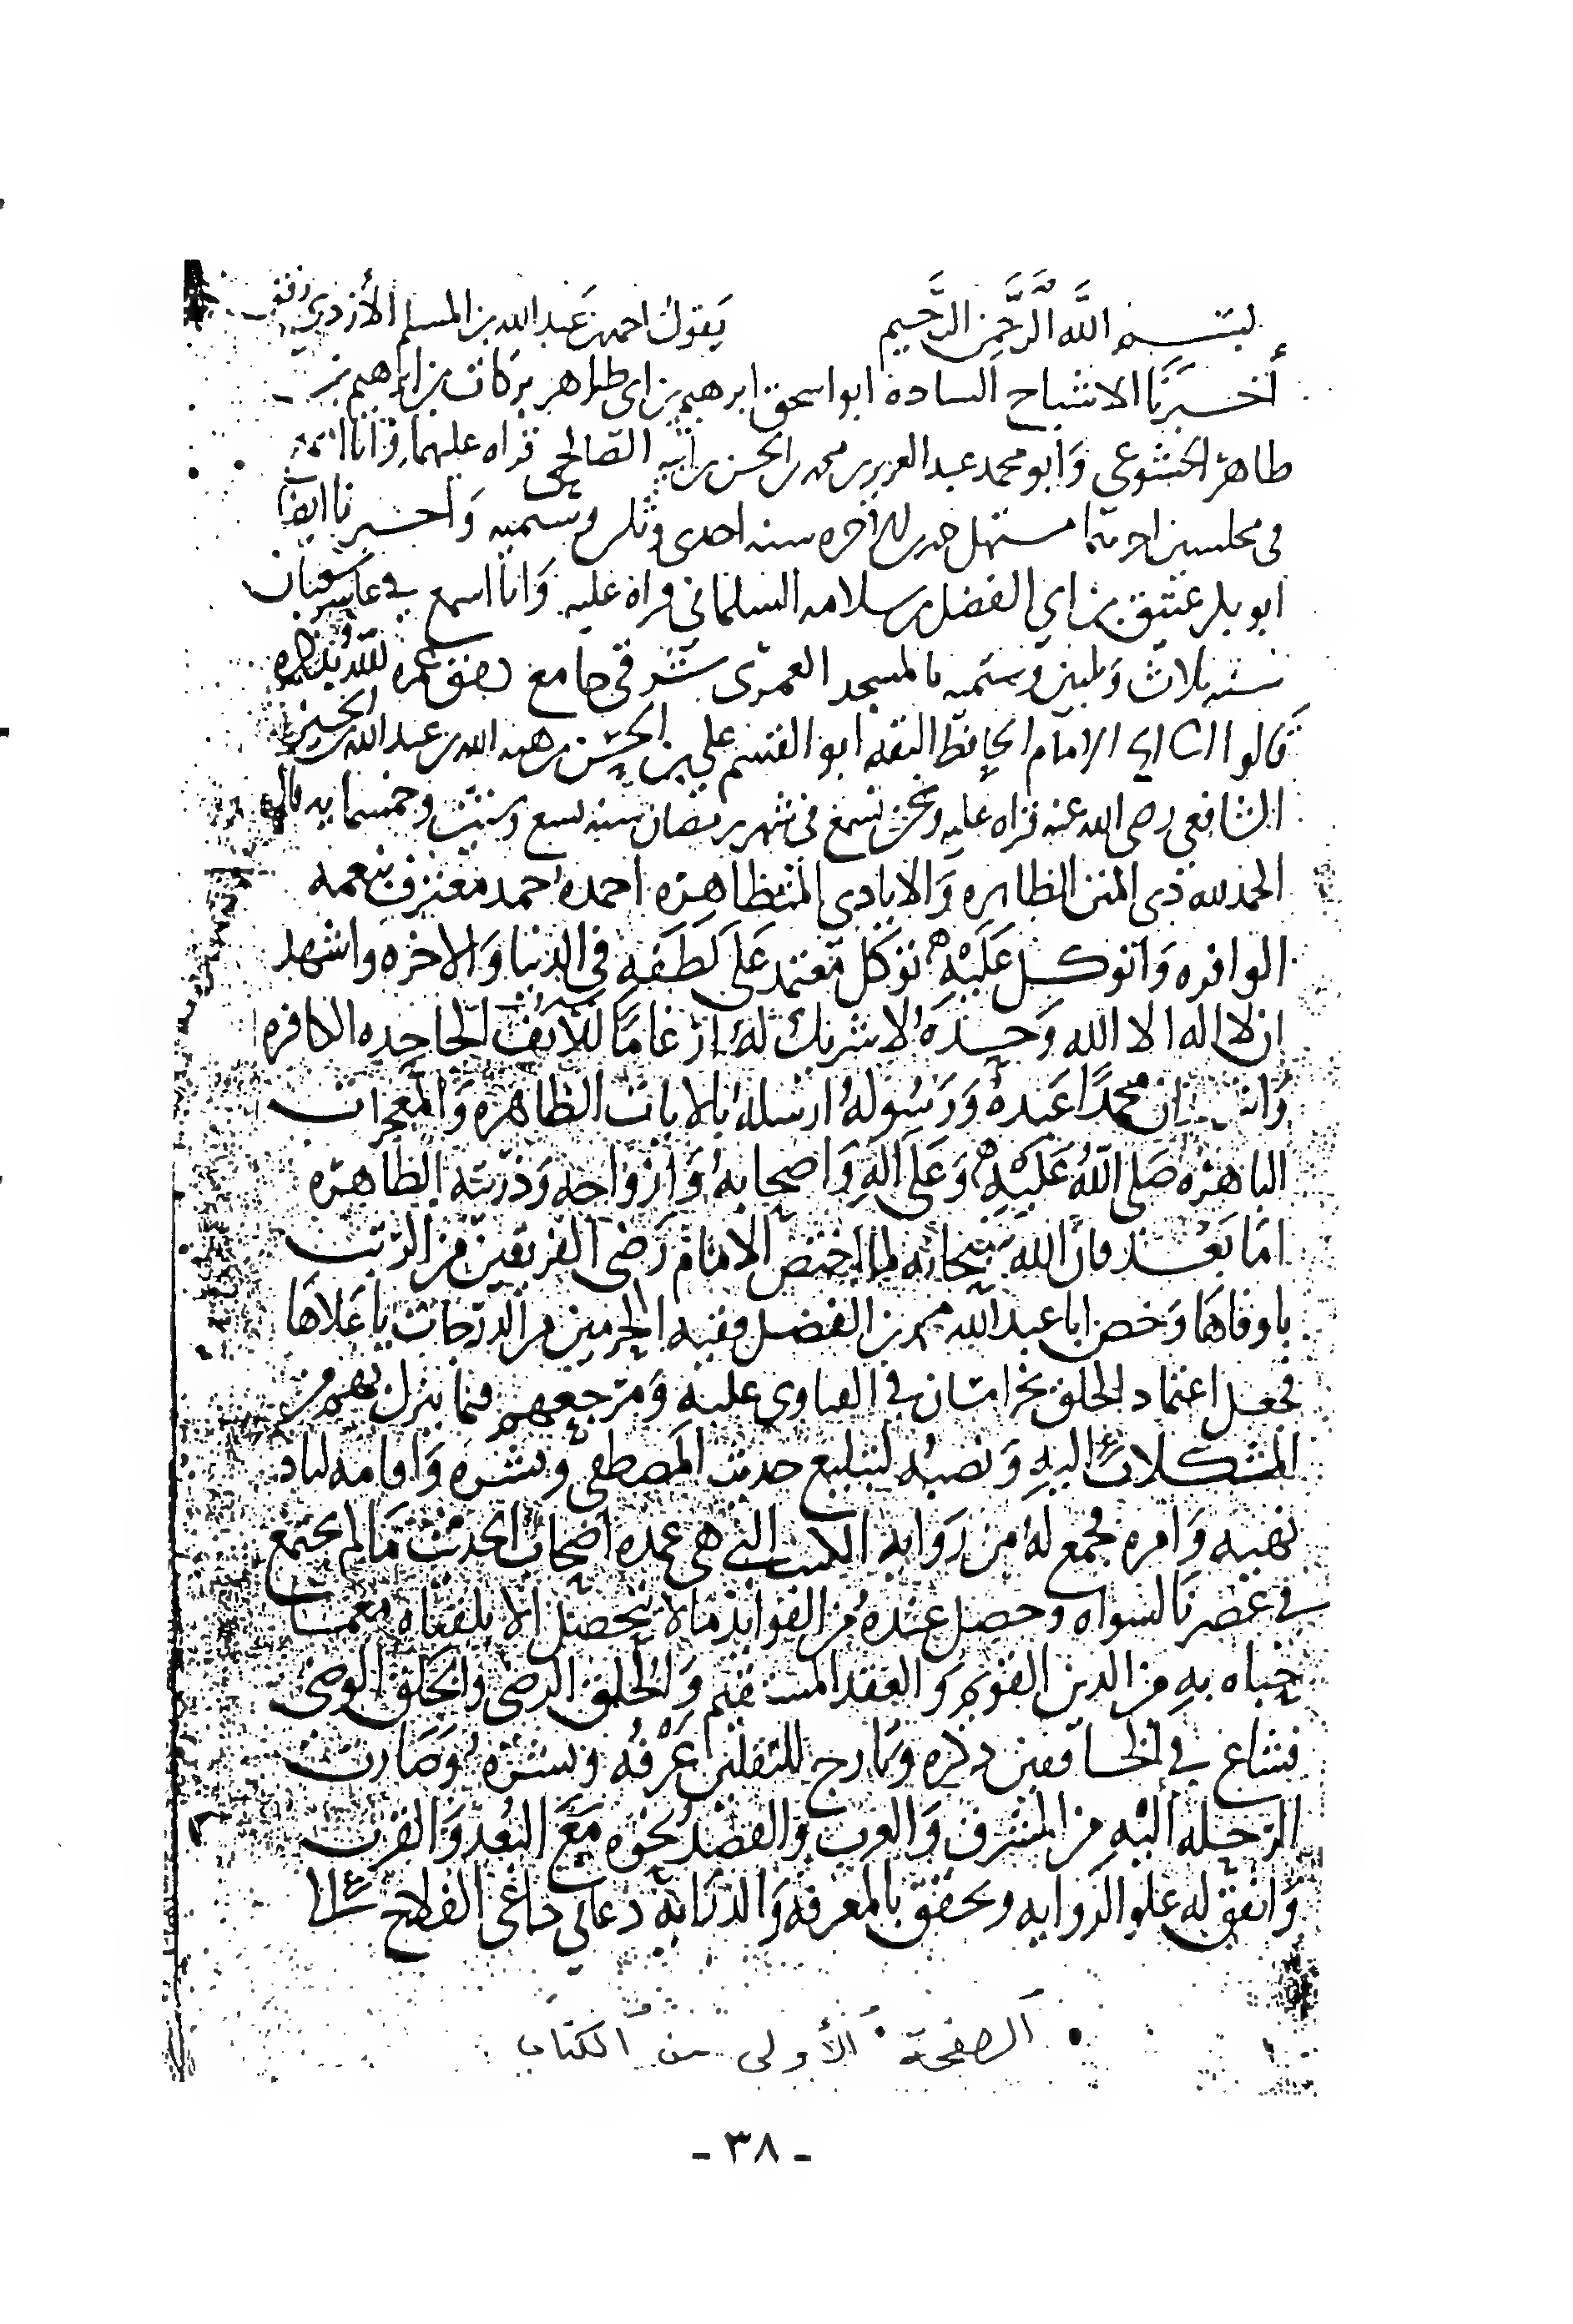 بسم الله الرحمن الرحيم يقول احمد بن عبد الله بن المسلم الأزدي
أخبرنا الاشياخ السادة ابو اسحق ابرهيم بن ابى طاهر بركات بن ابراهيم بن
طاهر الخشوعي وابو محمد عبد العزيز بن محمد بن الحسن بن الصالحى قراه عليهما وانا اسمع
فى مجلسين مستهل الآخره سنه احدى وثلثين وستميه وأخبرنا ايضا
ابو بكر عتيق بن ابي الفضل بن سلامه السلماني قراه عليه وانا اسمع في عاشر شعبان
سنه ثلاث وثلثين وستميه بالمسجد العمرى شرقي جامع دمشق عمره الله بذكره
قالوا الامام الحافظ الثقه ابو القسم علي بن الحسن بن هبه الله بن عبد الله بن الحسين
الشافعي رضى الله عنه قراه عليه ونحن نسمع في شهر رمضان سنه تسع وستين وخمسمايه قال
الحمد لله ذى المنن الظاهره والايادي المتظاهره احمده حمد معترف بنعمه
الوافره واتوكل عليه توكل معتمد على لطفه في الدنيا والاخره واشهد
ان لا اله الا الله وحده لا شريك له ارغاما للانف الجاحده الكافره
وان محمدا عبده ورسوله ارسله بالايات الظاهره والمعجزات
الباهره صلى الله عليه وعلى اله واصحابه وازواجه وذريته الطاهره
اما بعد فان الله سبحانه لما اختص الامام رضى الفريقين من الرتب
باوفاها وخص ابا عبد الله محمد بن الفضل فقيه الحرمين من الدرجات باعلاها
فجعل اعتماد الخلق بخراسان في الفتاوى عليه ومرجعهم فيما ينزل بهم من
المشكلات اليه ونصبه لتبليغ حديث المصطفى ونشره واقامه لبيان
نهيه وامره فجمع له من روايه الكتب التي هي عمده اصحاب الحديث ما لم يجتمع
في عصرنا لسواه وحصل عنده من الفوايد ما لا يتحصل الا بلقياه مع ما
حباه به من الدين القويم والعقد المستقيم والخلق الرضى والخلق الوضى
فشاع في الخافقين ذكره وتارج للثقلين عرفه ونشره وصارت
الرحله اليه من المشرق والغرب والقصد نحوه مع البعد والقرب
واتفق له علو الروايه وتحقق بالمعرفه والدرايه دعاني داعى الفلاح الى
الصفحة الأولى من الكتاب
- ٣٨ -